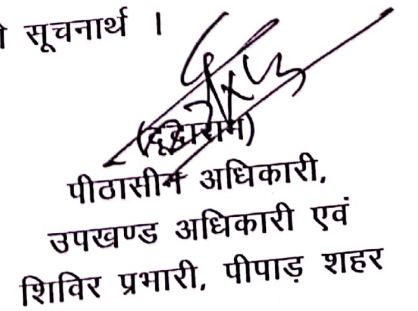 सूचनार्थ ।
(दूद्धाराम)
पीठासीन अधिकारी,
उपखण्ड अधिकारी एवं
शिविर प्रभारी, पीपाड़ शहर